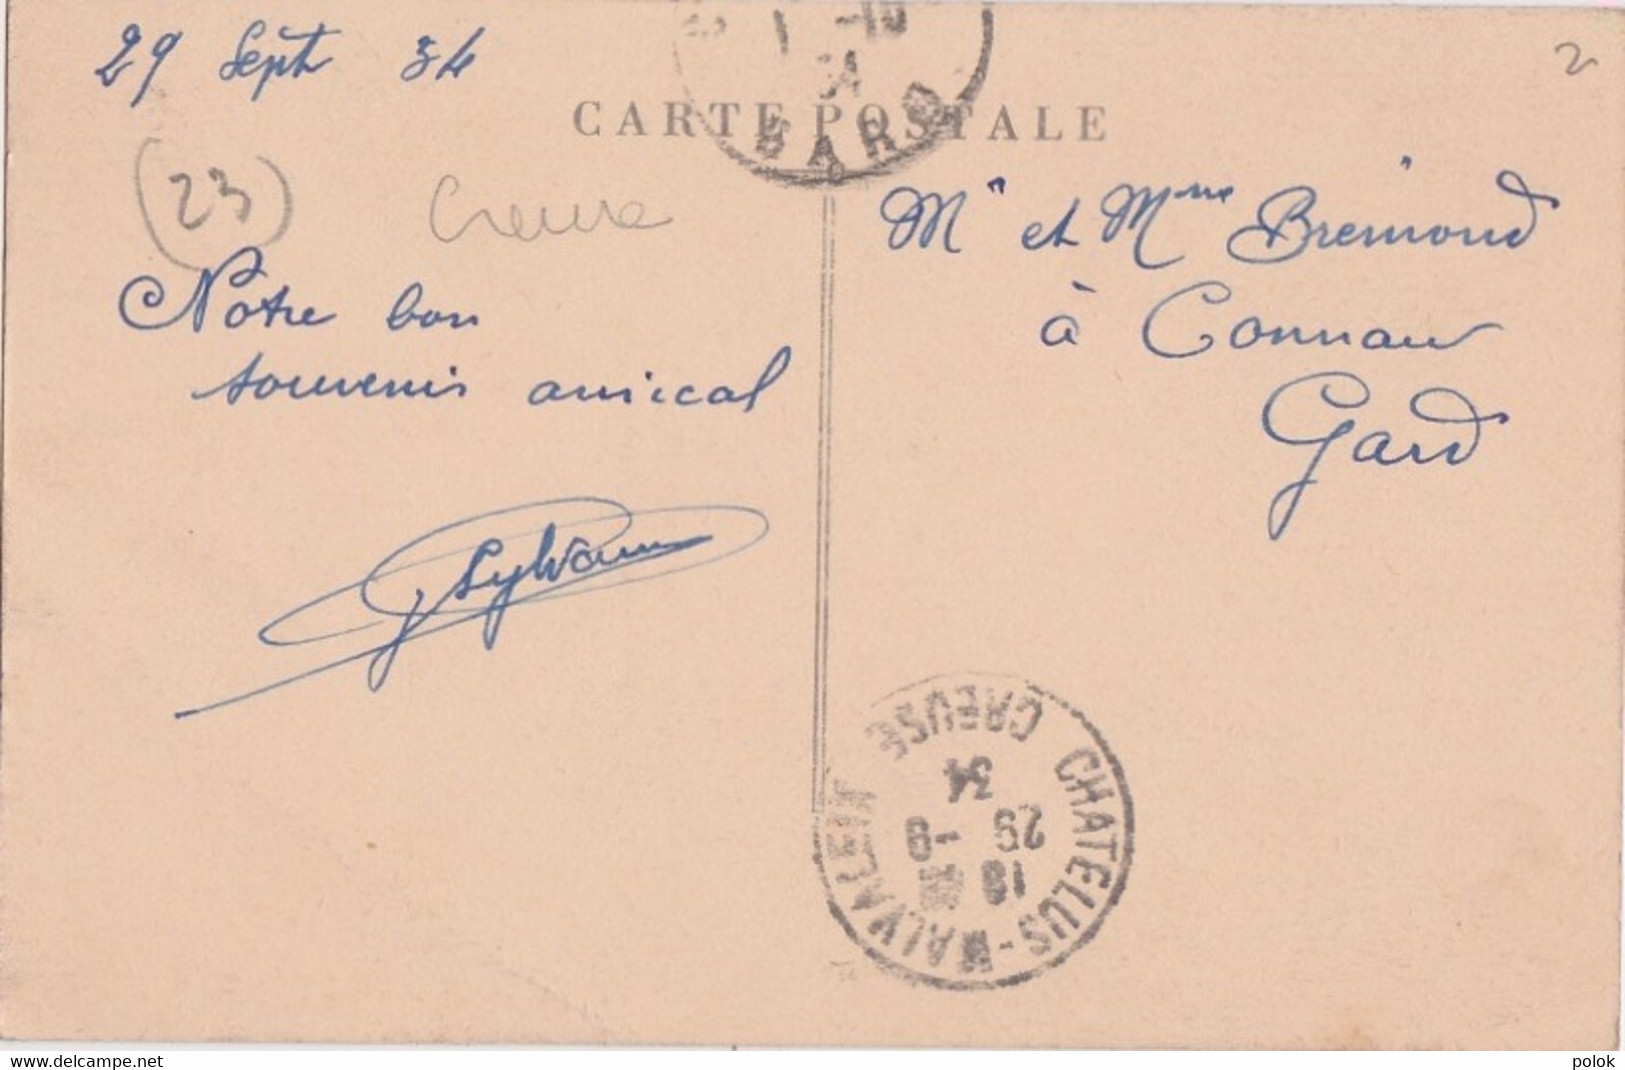 29 Sept 34
1 -10
34
GARD
CARTE POSTALE
2
(23) Creuse
Mr et Mme Bremond
à Connaux
Gard
Notre bon
souvenir amical
Sylvain
CHATELUS-MALVALEUX
CREUSE
18
29 -9
34
www.delcampe.net
polok